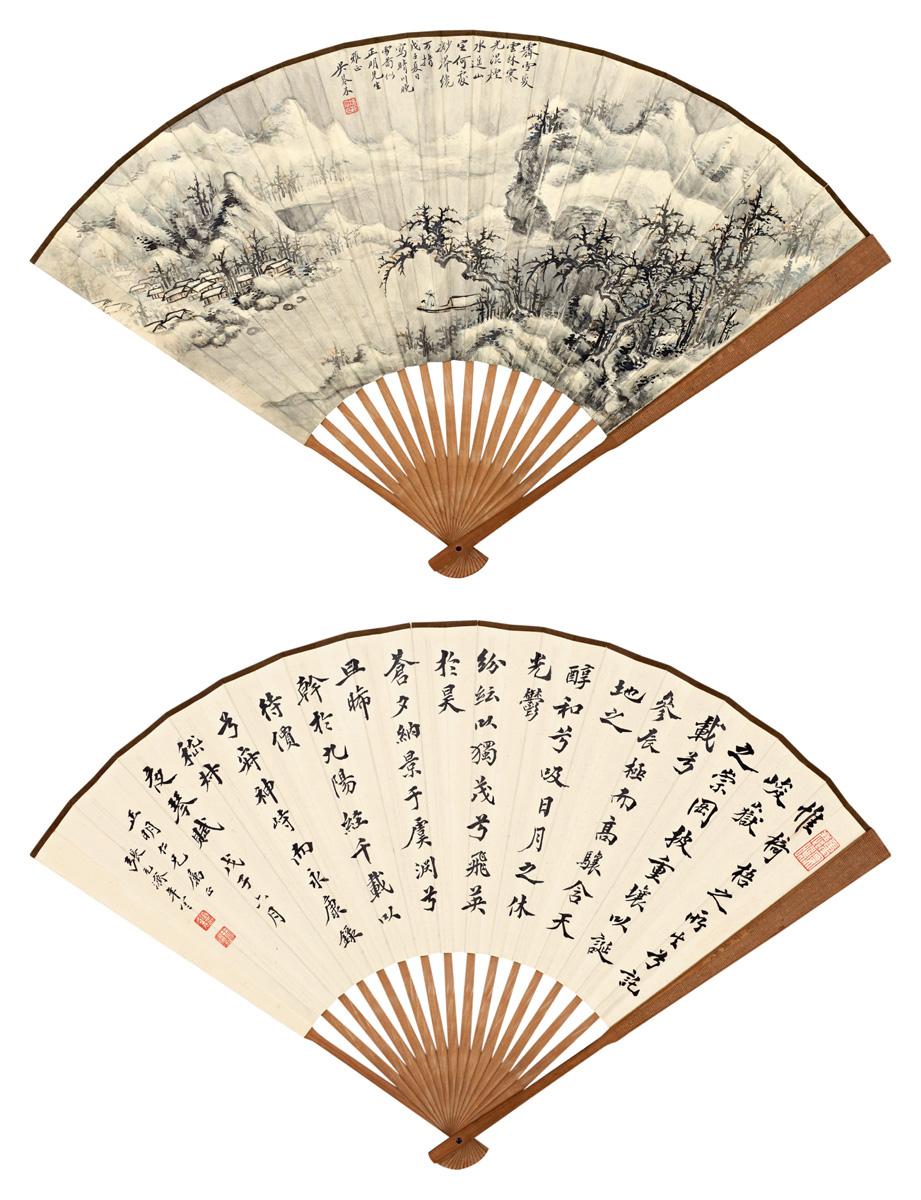 雲林寒
光混煙
水遠山
空何處
可指
戊子夏日
雪圖似
正明先生
雅正
吴琴木
惟椅梧之所生兮託
峻嶽
之崇岡披重壤以誕
載兮
參辰極而高驤含天
地之
醇和兮吸日月之休
光鬱
紛紜以獨茂兮飛英
於昊
蒼夕納景于虞淵兮
旦晞
幹於九陽經千載以
待價
兮寂神峙而永康錄
嵇叔
夜琴賦 戊子六月
正明仁兄屬正
張元濟